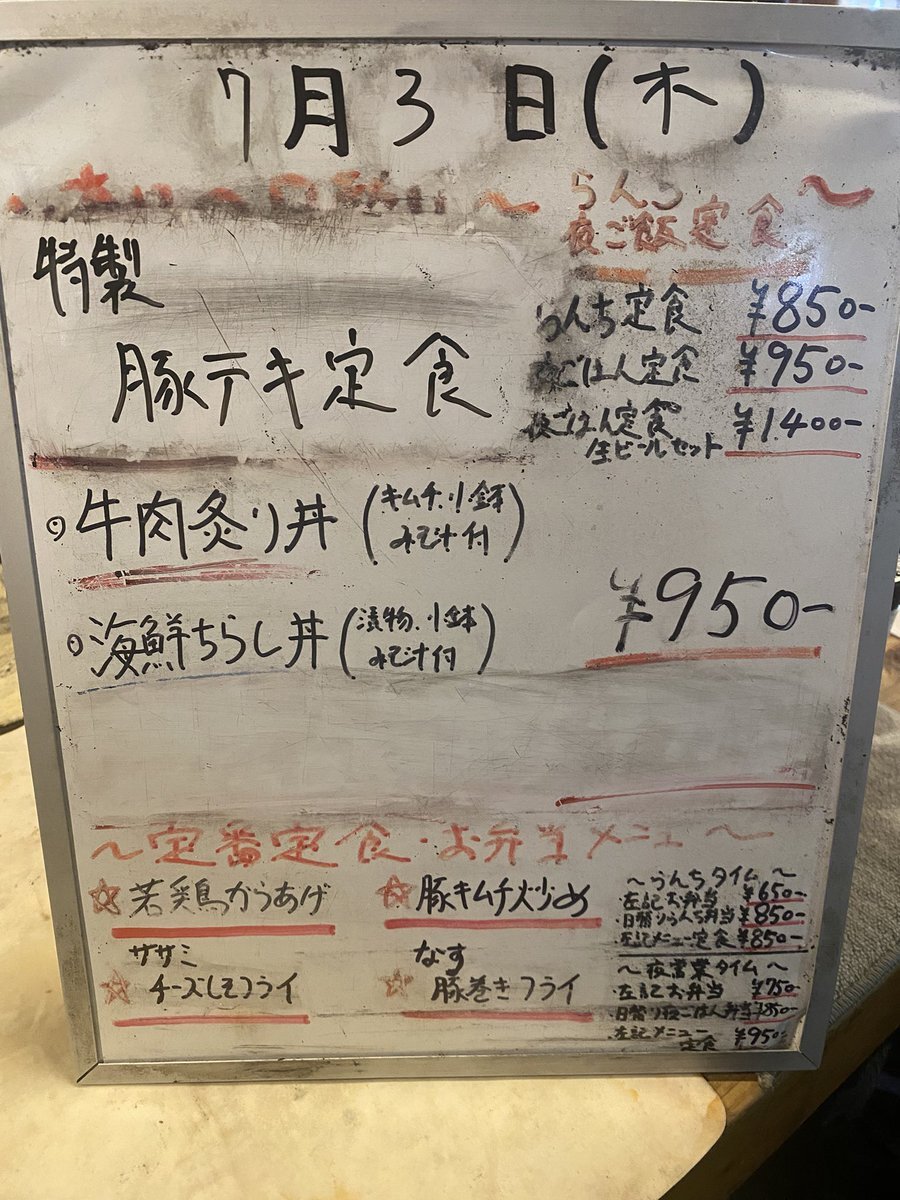 7月3日(木)
～ らんち ～
夜ご飯定食
特製
豚テキ定食
らんち定食 ¥850-
夜ごはん定食 ¥950-
夜ごはん定食 ¥1.400-
生ビールセット
牛肉炙り丼 (キムチ、小鉢
みそ汁付)
¥950-
海鮮ちらし丼 (漬物、小鉢
みそ汁付)
～定番定食・お弁当メニュー～
☆若鶏からあげ
☆豚キムチ炒め
ササミ
☆チーズしそフライ
なす
☆豚巻きフライ
～らんちタイム～
・左記お弁当 ¥650-
・日替りらんち弁当 ¥850-
・左記メニュー定食 ¥850-
～夜営業タイム～
・左記お弁当 ¥750-
・日替り夜ごはん弁当 ¥850-
・左記メニュー
定食 ¥950-